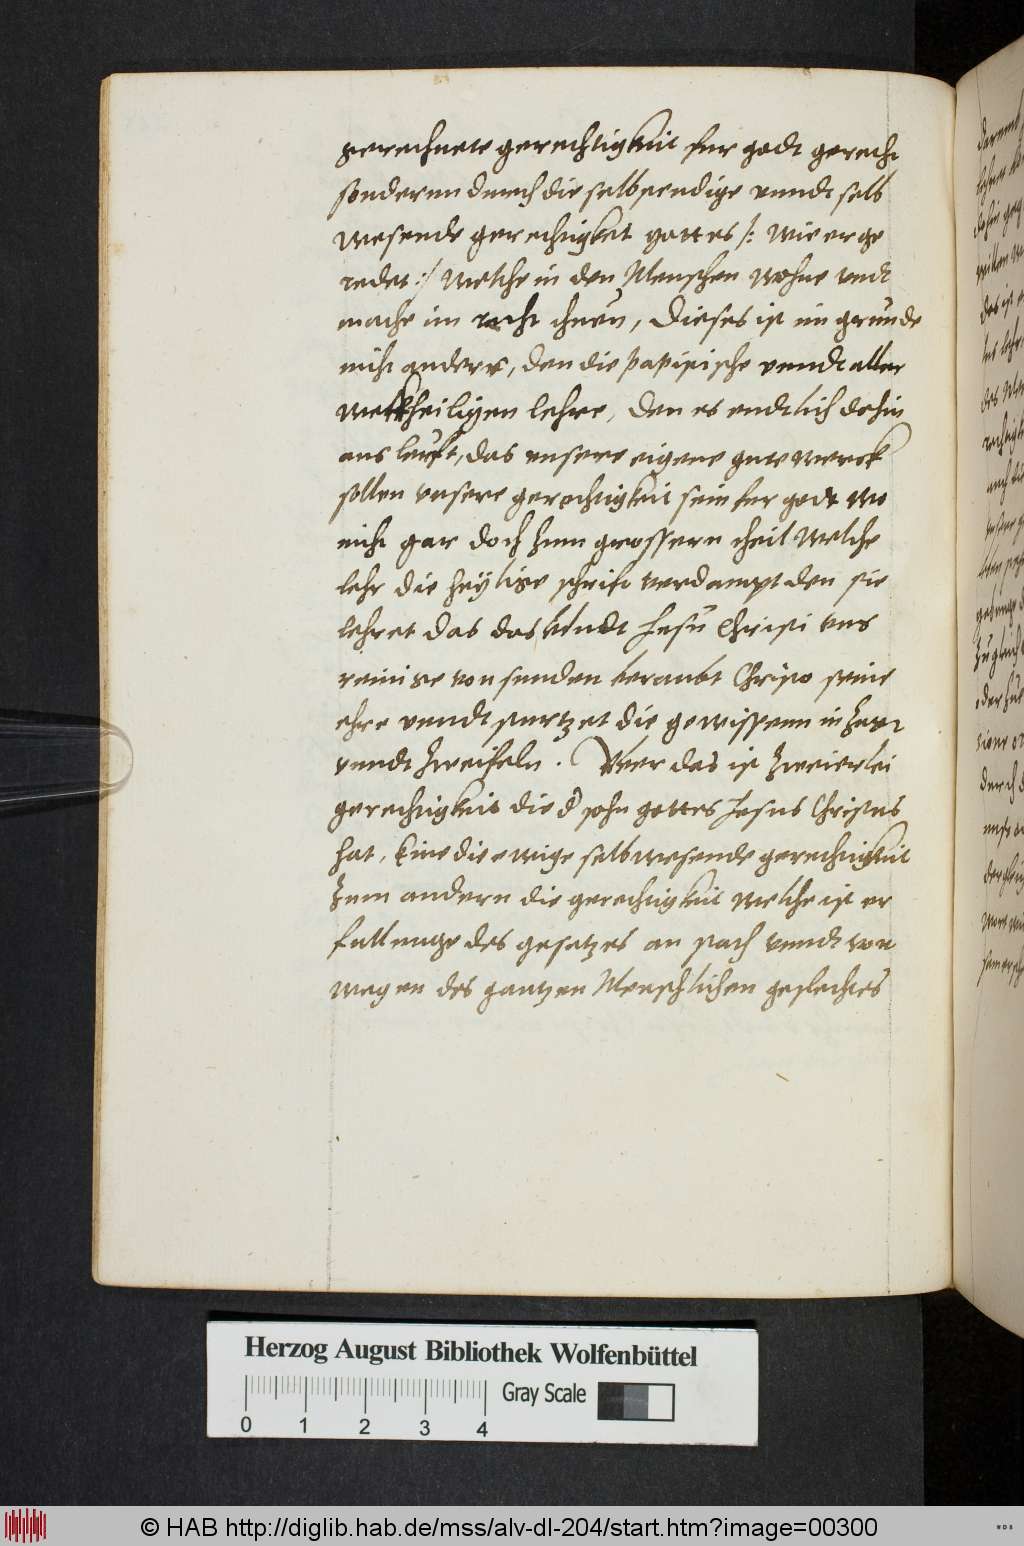 gerechnete gerechtigkeit fur godt gerecht
sonderen durch die selbstendige unndt selb
wesende gerechtigket gottes /: wie er ge
redet :/ welche in den Menschen wohne undt
mache im recht thuen, Dieses ist im grunde
nicht anders, den die papistische unndt aller
werkheiligen lehre, den es endtlich dohin
aus leuft, das unsere eigene gute werck
sollen unsere gerechtigkeit sein fur godt wo
nicht gar doch zum grossern theil welche
lehr die heylige schrift verdampt den sie
lehret das das bludt Jesu Christi uns
reinige von sunden beraubt Christo seine
ehre unndt sturtzet die gewissenn in
unndt zweifeln . Uber das ist zweierlei
gerechtigkeit die d sohn gottes Jesus Christus
hat, Eine die ewige selbwesende gerechtigkeit
Zum andern die gerechtigkeit welche ist er
fullunge des gesatzes an stath unndt von
wegen des gantzen Menschlichen geslechtes
Herzog August Bibliothek Wolfenbüttel
Gray Scale
0 1 2 3 4
© HAB http://diglib.hab.de/mss/alv-dl-204/start.htm?image=00300